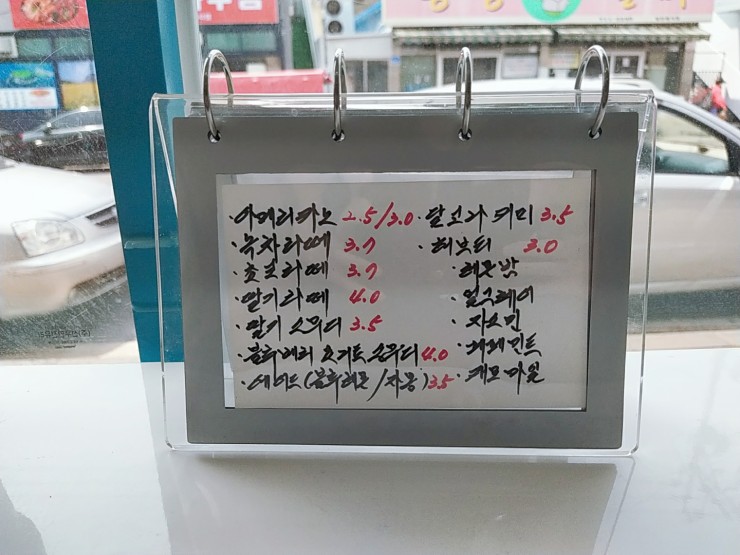 ·아메리카노 2.5/3.0
·녹차라떼 3.7
·초코라떼 3.7
·딸기라떼 4.0
·딸기 스무디 3.5
·블루베리 요거트 스무디 4.0
·에이드(블루레몬/자몽) 3.5
·달고나 커피 3.5
·허브티 3.0
·얼그레이
·자스민
·페퍼민트
·캐모마일